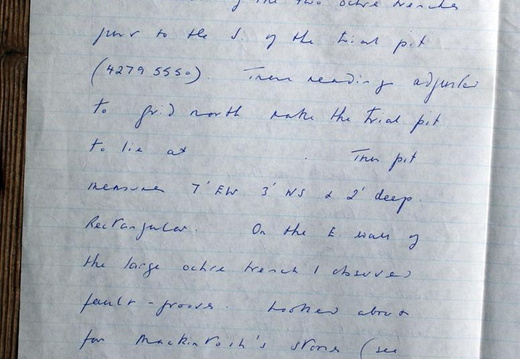 of the two ochre trenches
just to the S. of the trial pit
(4279 5550) These readings adjusted
to grid north make the trial pit
to lie at This pit
measures 7' EW 3' NS & 2' deep.
Rectangular. On the E wall of
the large ochre trench I observed
fault-grooves. Looked about
for Mackintosh's stones (see